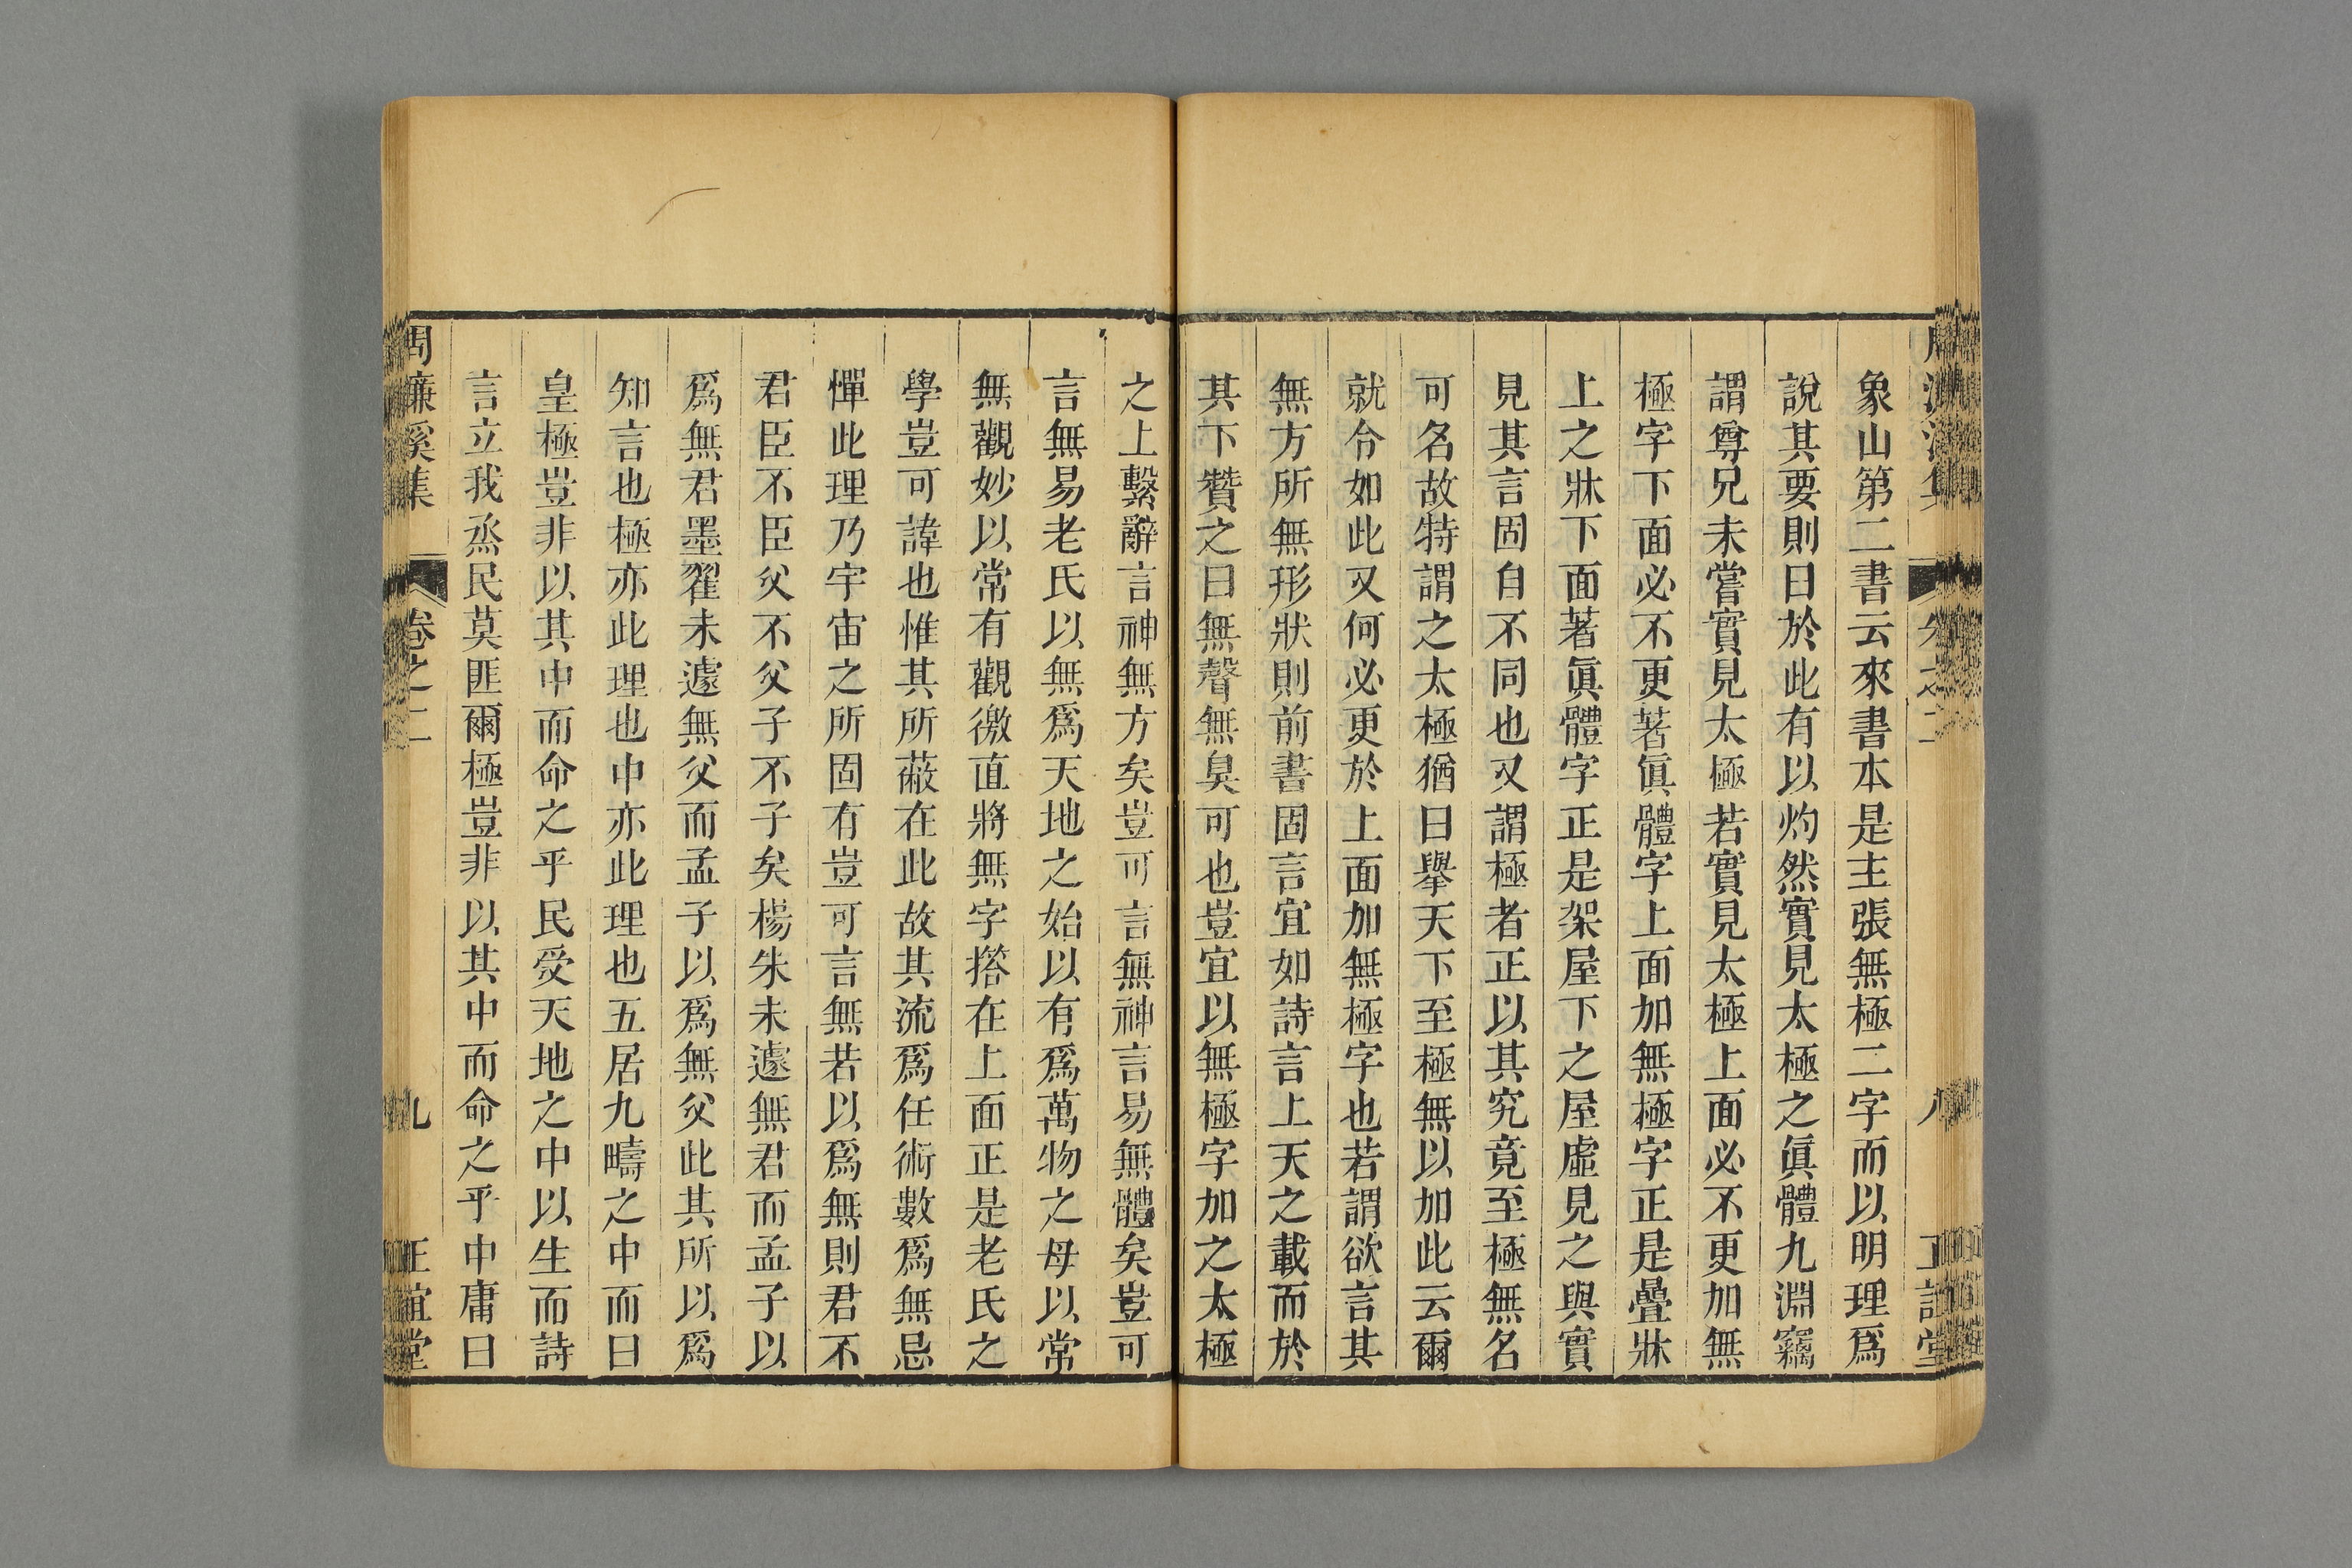 象山第二書云來書本是主張無極二字而以明理爲
說其要則曰於此有以灼然實見太極之眞體九淵竊
謂尊兄未嘗實見太極若實見太極上面必不更加無
極字下面必不更著眞體字上面加無極字正是疊牀
上之牀下面著眞體字正是架屋下之屋虛見之與實
見其言固自不同也又謂極者正以其究竟至極無名
可名故特謂之太極猶曰舉天下至極無以加此云爾
就令如此又何必更於上面加無極字也若謂欲言其
無方所無形狀則前書固言宜如詩言上天之載而於
其下贊之曰無聲無臭可也豈宜以無極字加之太極
之上繫辭言神無方矣豈可言無神言易無體矣豈可
言無易老氏以無爲天地之始以有爲萬物之母以常
無觀妙以常有觀徼直將無字搭在上面正是老氏之
學豈可諱也惟其所蔽在此故其流爲任術數爲無忌
憚此理乃宇宙之所固有豈可言無若以爲無則君不
君臣不臣父不父子不子矣楊朱未遽無君而孟子以
爲無君墨翟未遽無父而孟子以爲無父此其所以爲
知言也極亦此理也中亦此理也五居九疇之中而曰
皇極豈非以其中而命之乎民受天地之中以生而詩
言立我烝民莫匪爾極豈非以其中而命之乎中庸曰
周濂溪集
卷之二
九
正誼堂